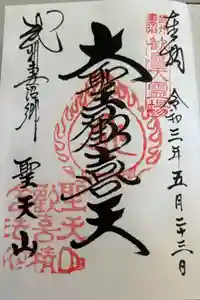 奉拝
令和三年五月二十三日
大聖歓喜天
武州妻沼郷
聖天山
聖天山